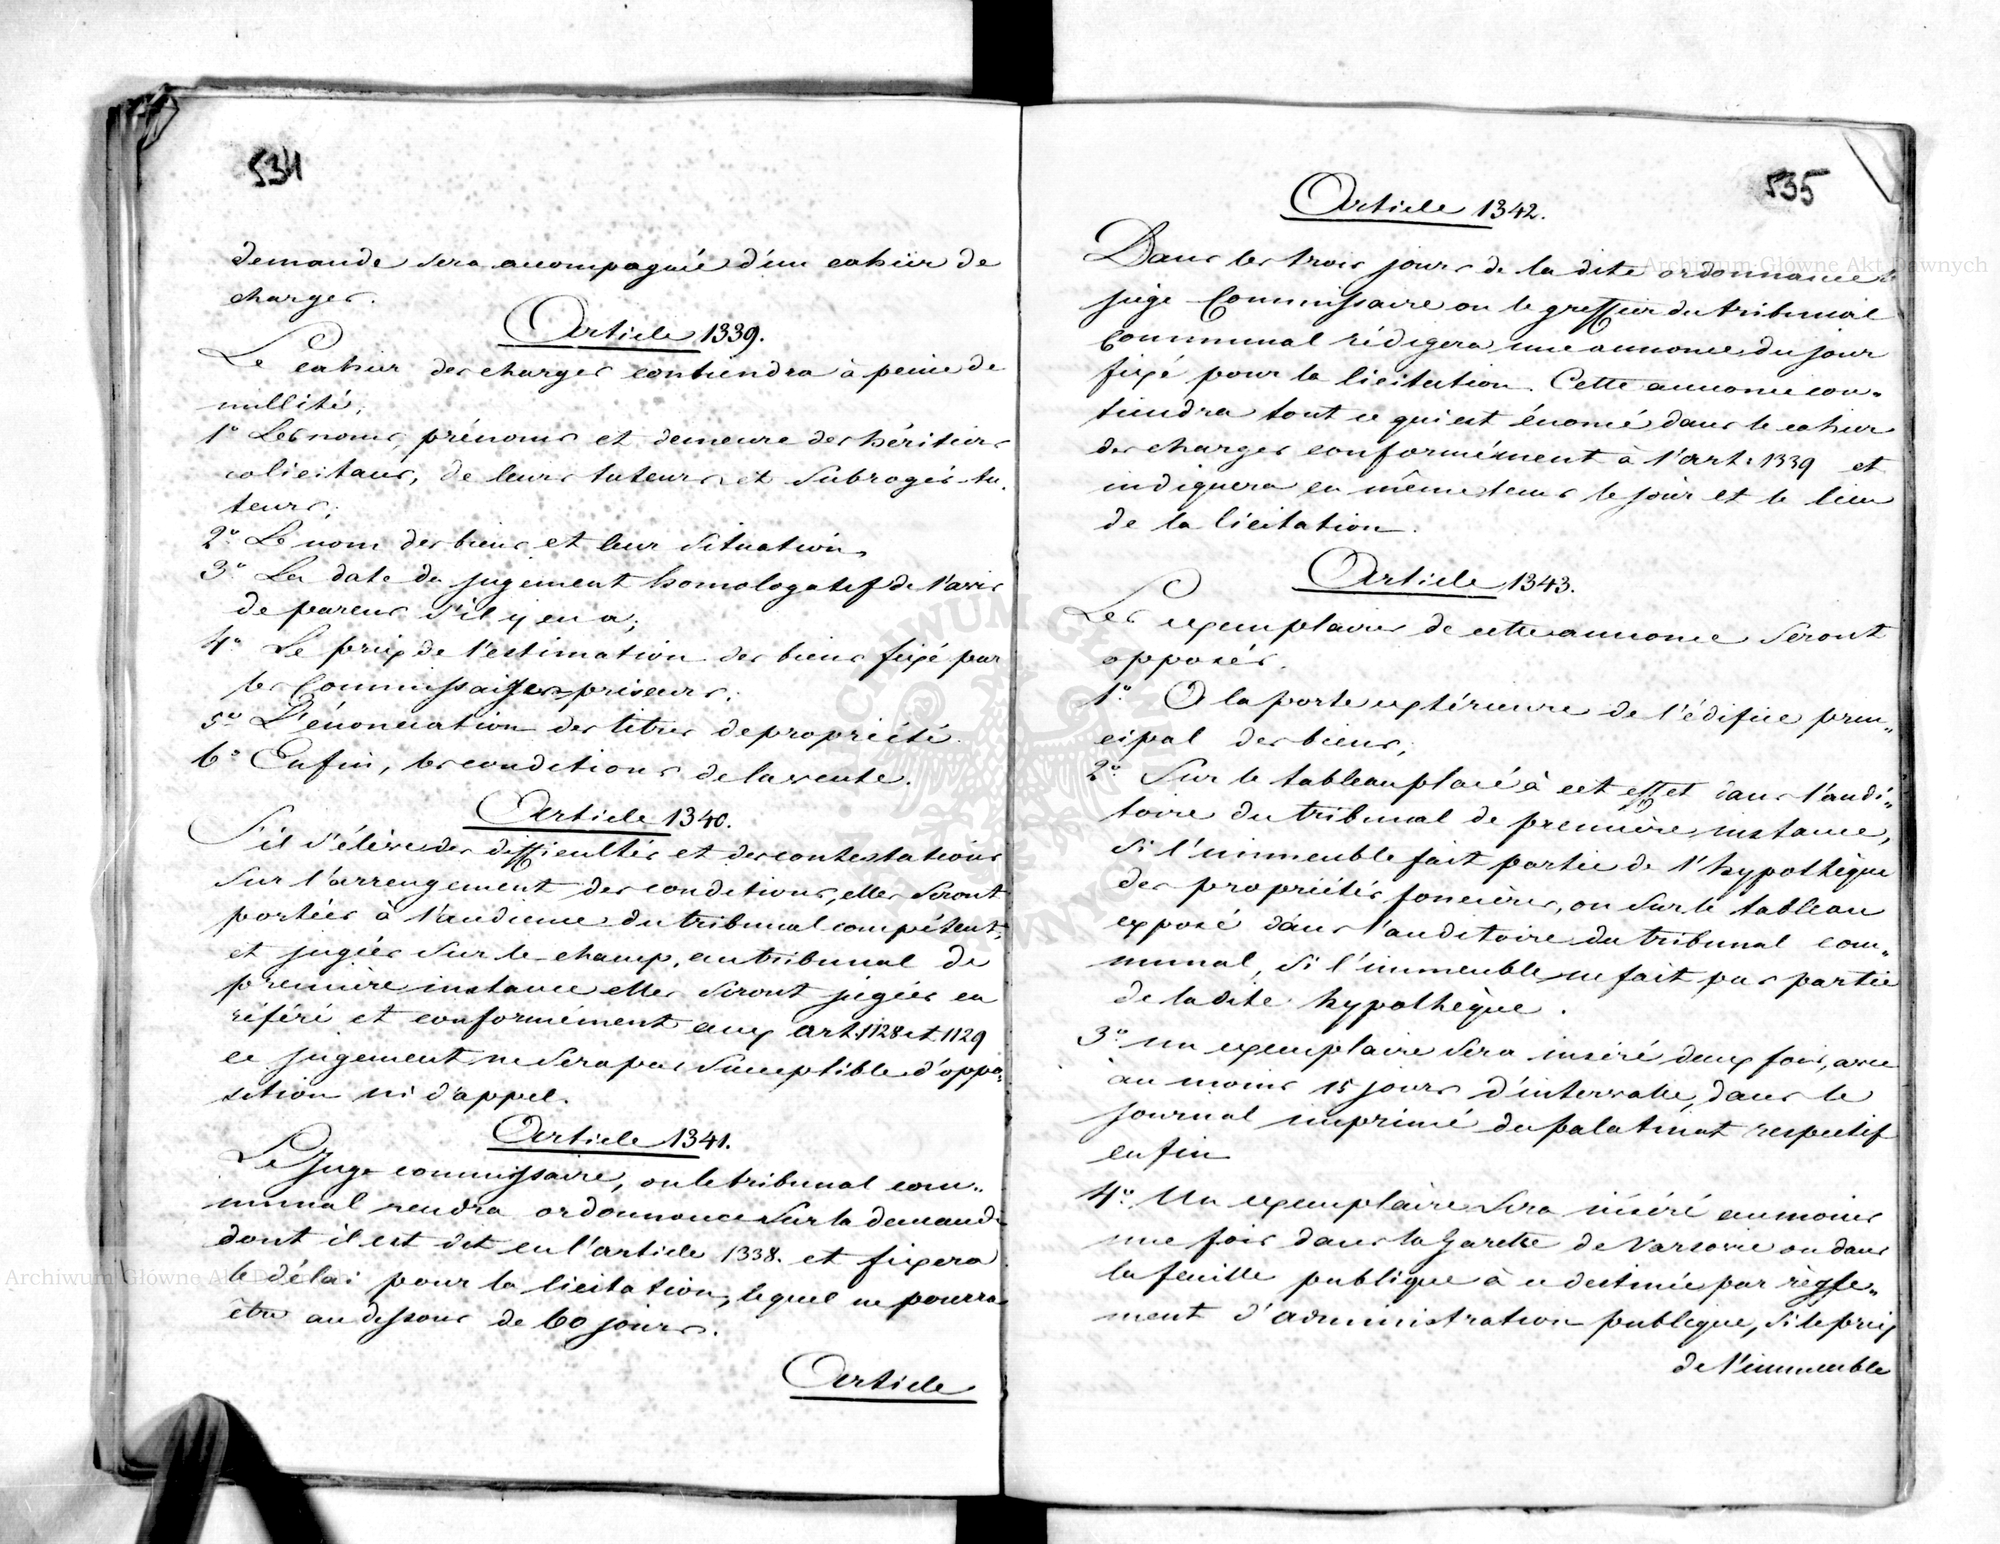 534
demande sera accompagnée d'un cahier de
charges.
Article 1339.
Le cahier des charges contiendra à peine de
nullité;
1º Les noms, prénoms et demeure des héritiers
colicitans, de leurs tuteurs et subrogés-tu-
teurs;
2º Le nom des biens et leur situation,
3º La date du jugement homologatif de l'avis
de parens s'il y en a;
4º Le prix de l'estimation des biens fixé par
les Commissaires priseurs;
5º L'énonciation des titres de propriété.
6º Enfin, les conditions de la vente.
Article 1340.
S'il s'élève des difficultés et des contestations
sur l'arrengement des conditions, elles seront
portées à l'audience du tribunal compétent,
et jugées sur le champ, au tribunal de
première instance elles seront jugées en
référé et conformément aux art. 1128 et 1129
ce jugement ne sera pas susceptible d'oppo-
sition ni d'appel.
Article 1341.
Le Juge commissaire, ou le tribunal com-
munal rendra ordonnance sur la demande
dont il est dit en l'article 1338. et fixera
le délai pour la licitation, lequel ne pourra
être au dessous de 60 jours.
Article
535
Article 1342.
Dans les trois jours de la dite ordonnance le
juge Commissaire ou le greffier du tribunal
Communal rédigera une annonce du jour
fixé pour la licitation. Cette annonce con-
tiendra tout ce qui est énoncé dans le cahier
des charges conformément à l'art: 1339 et
indiquera en même tems le jour et le lieu
de la licitation.
Article 1343.
Les exemplaires de cette annonce seront
apposés.
1º A la porte extérieure de l'édifice prin-
cipal des biens;
2º Sur le tableau placé à cet effet dans l'audi-
toire du tribunal de première instance,
si l'immeuble fait partie de l'hypothèque
des propriétés foncières, ou sur le tableau
exposé dans l'auditoire du tribunal com-
munal, si l'immeuble ne fait pas partie
de la dite hypothèque.
3º un exemplaire sera inséré deux fois, avec
au moins 15 jours d'intervalle, dans le
journal imprimé du palatinat respectif
enfin
4º Un exemplaire sera inséré au moins
une fois dans la Gazette de Varsovie ou dans
la feuille publique à ce destinée par règle-
ment d'administration publique, si le prix
de l'immeuble
Archiwum Główne Akt Dawnych
Archiwum Główne Akt Dawnych